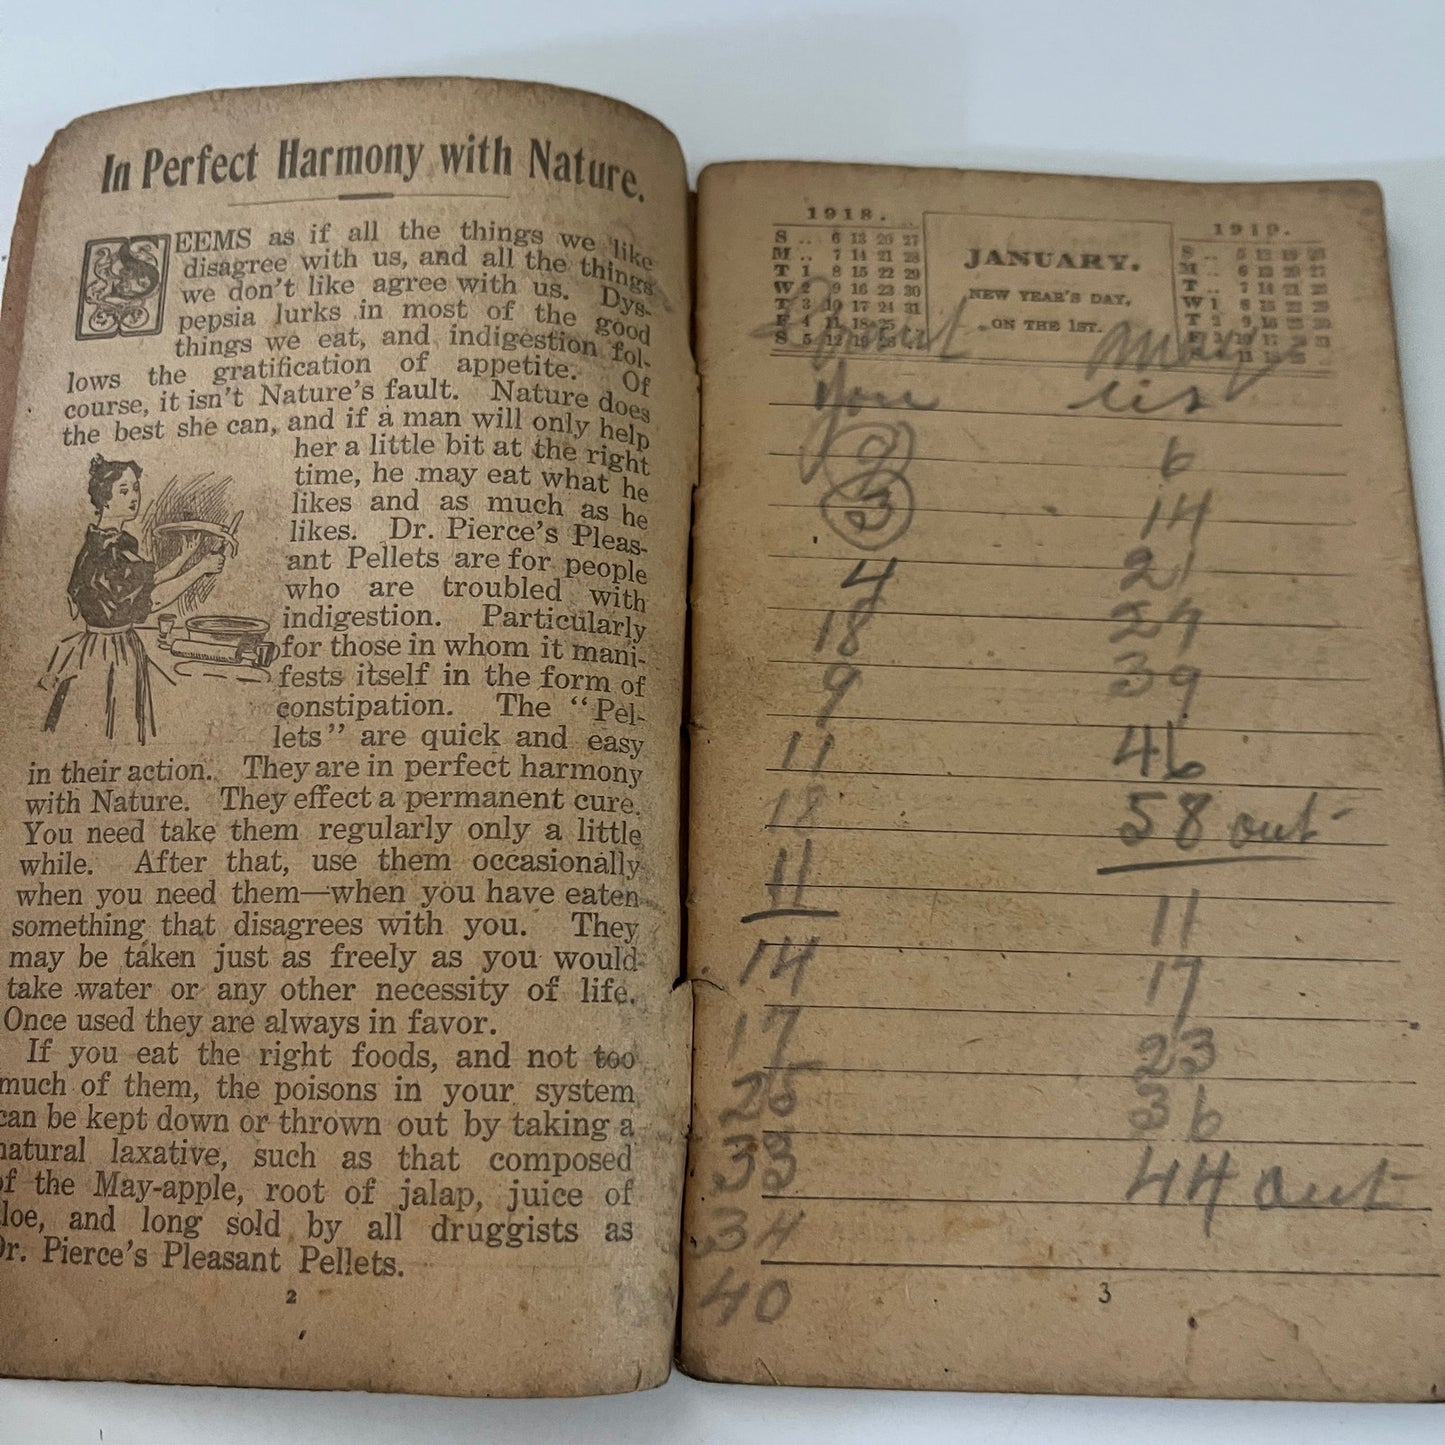 In Perfect Harmony with Nature.
SEEMS as if all the things we like
disagree with us, and all the things
we don't like agree with us. Dys-
pepsia lurks in most of the good
things we eat, and indigestion fol-
lows the gratification of appetite. Of
course, it isn't Nature's fault. Nature does
the best she can, and if a man will only help
her a little bit at the right
time, he may eat what he
likes and as much as he
likes. Dr. Pierce's Pleas-
ant Pellets are for people
who are troubled with
indigestion. Particularly
for those in whom it mani-
fests itself in the form of
constipation. The "Pel-
lets" are quick and easy
in their action. They are in perfect harmony
with Nature. They effect a permanent cure.
You need take them regularly only a little
while. After that, use them occasionally
when you need them—when you have eaten
something that disagrees with you. They
may be taken just as freely as you would
take water or any other necessity of life.
Once used they are always in favor.
If you eat the right foods, and not too
much of them, the poisons in your system
can be kept down or thrown out by taking a
natural laxative, such as that composed
of the May-apple, root of jalap, juice of
loe, and long sold by all druggists as
Dr. Pierce's Pleasant Pellets.
2
1918.
S .. 6 13 20 27
M .. 7 14 21 28
T 1 8 15 22 29
W 2 9 16 23 30
T 3 10 17 24 31
F 4 11 18 25
S 5 12 19 26
JANUARY.
NEW YEAR'S DAY,
ON THE 1ST.
1919.
S .. 5 12 19 26
M .. 6 13 20 27
T .. 7 14 21 28
W 1 8 15 22 29
T 2 9 16 23 30
F 3 10 17 24 31
11 18 25
you
3
4
18
9
11
18
11
14
17
25
33
34
40
6
14
21
27
39
46
58 out
11
17
23
36
44 out
3